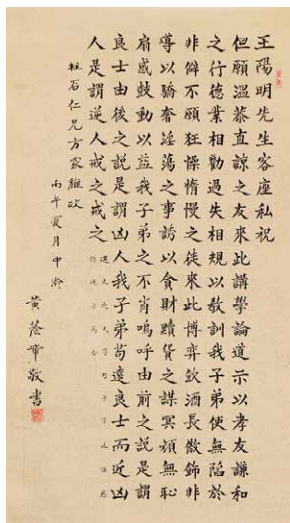 王陽明先生客座私祝
但願溫恭直諒之友來此講學論道示以孝友謙和
之行德業相勸過失相規以教訓我子弟使無陷於
非僻不願狂懆惰慢之徒來此博弈飲酒長傲飾非
導以驕奢淫蕩之事誘以貪財黷貨之謀冥頑無恥
扇惑鼓動以益我子弟之不肖嗚呼由前之說是謂
良士由後之說是謂凶人我子弟苟遠良士而近凶
人是謂逆人戒之戒之
逆人之人字乃子字之誤
石仁兄方家雅政
丙午夏月中澣
黃蔭華敬書